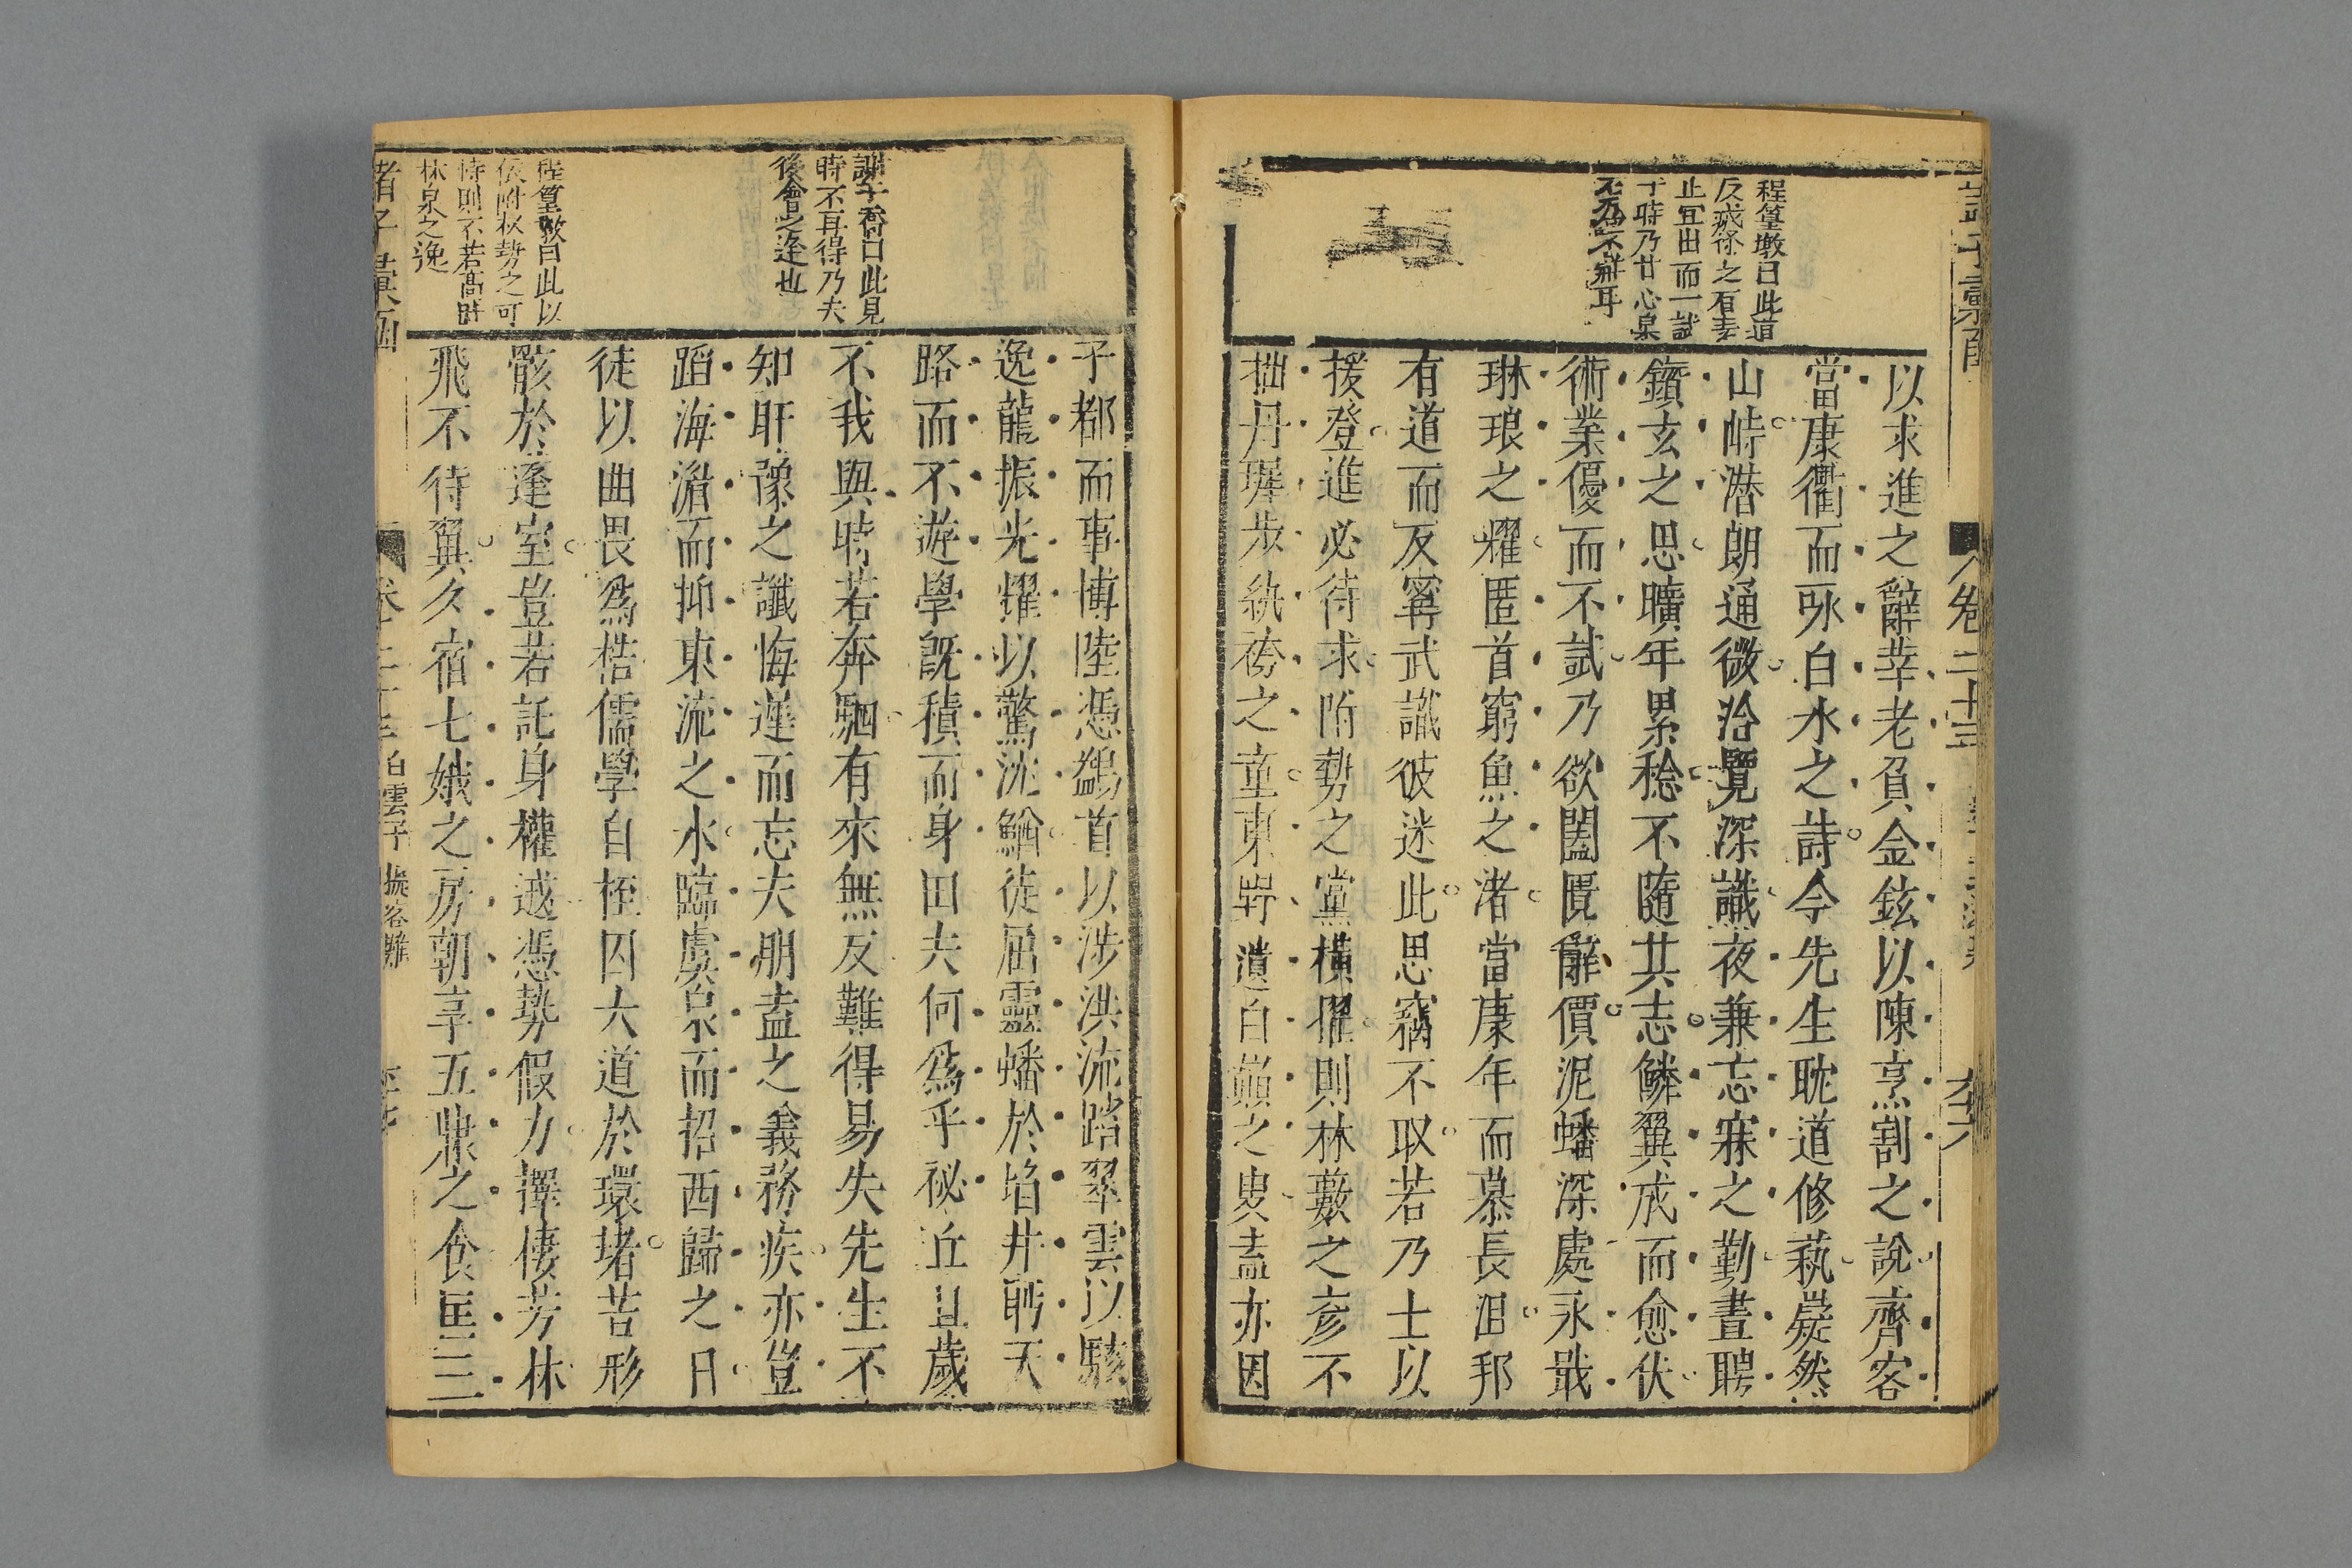 程篁墩曰此道
反戒徐之有素
止宜出而一試
于時乃甘心泉
石為不辯耳
以求進之辭莘老負金鉉以陳烹割之說齊客
當康衢而咏白水之詩今先生耽道修蓺嶷然
山峙潛朗通微洽覽深識夜兼忘寐之勤晝騁
鑽玄之思曠年累稔不隨其志鱗翼成而愈伏
術業優而不試乃欲闔匱辭價泥蟠深處永戢
琳琅之耀匿首窮魚之渚當康年而慕長沮邦
有道而反寗武識彼迷此思竊不取若乃士以
援登進必待求附勢之黨橫擢則林藪之彥不
拙丹墀步紈袴之童東野遺白顛之叟盍亦因
謝子喬曰此見
時不再得乃夫
後會之逢也
子都而事博陸憑鷁首以涉洪流蹈翠雲以駭
逸龍振光耀以驚沈鰌徒屈靈蟠於埳井眄天
路而不遊學既積而身田夫何為乎祕丘且歲
不我與時若奔駟有來無反難得易失先生不
知盱豫之讖悔遲而忘夫朋盍之義務疾亦豈
蹈海湝而抑東流之水臨虞泉而招西歸之日
徒以曲畏為梏儒學自桎囚大道於環堵苦形
骸於蓬室豈若託身權戚憑勢假力擇棲芳林
飛不待翼久宿七娥之房朝享五鼎之食匡三
程篁墩曰此以
依附權勢之可
恃則不若高蹈
林泉之逸